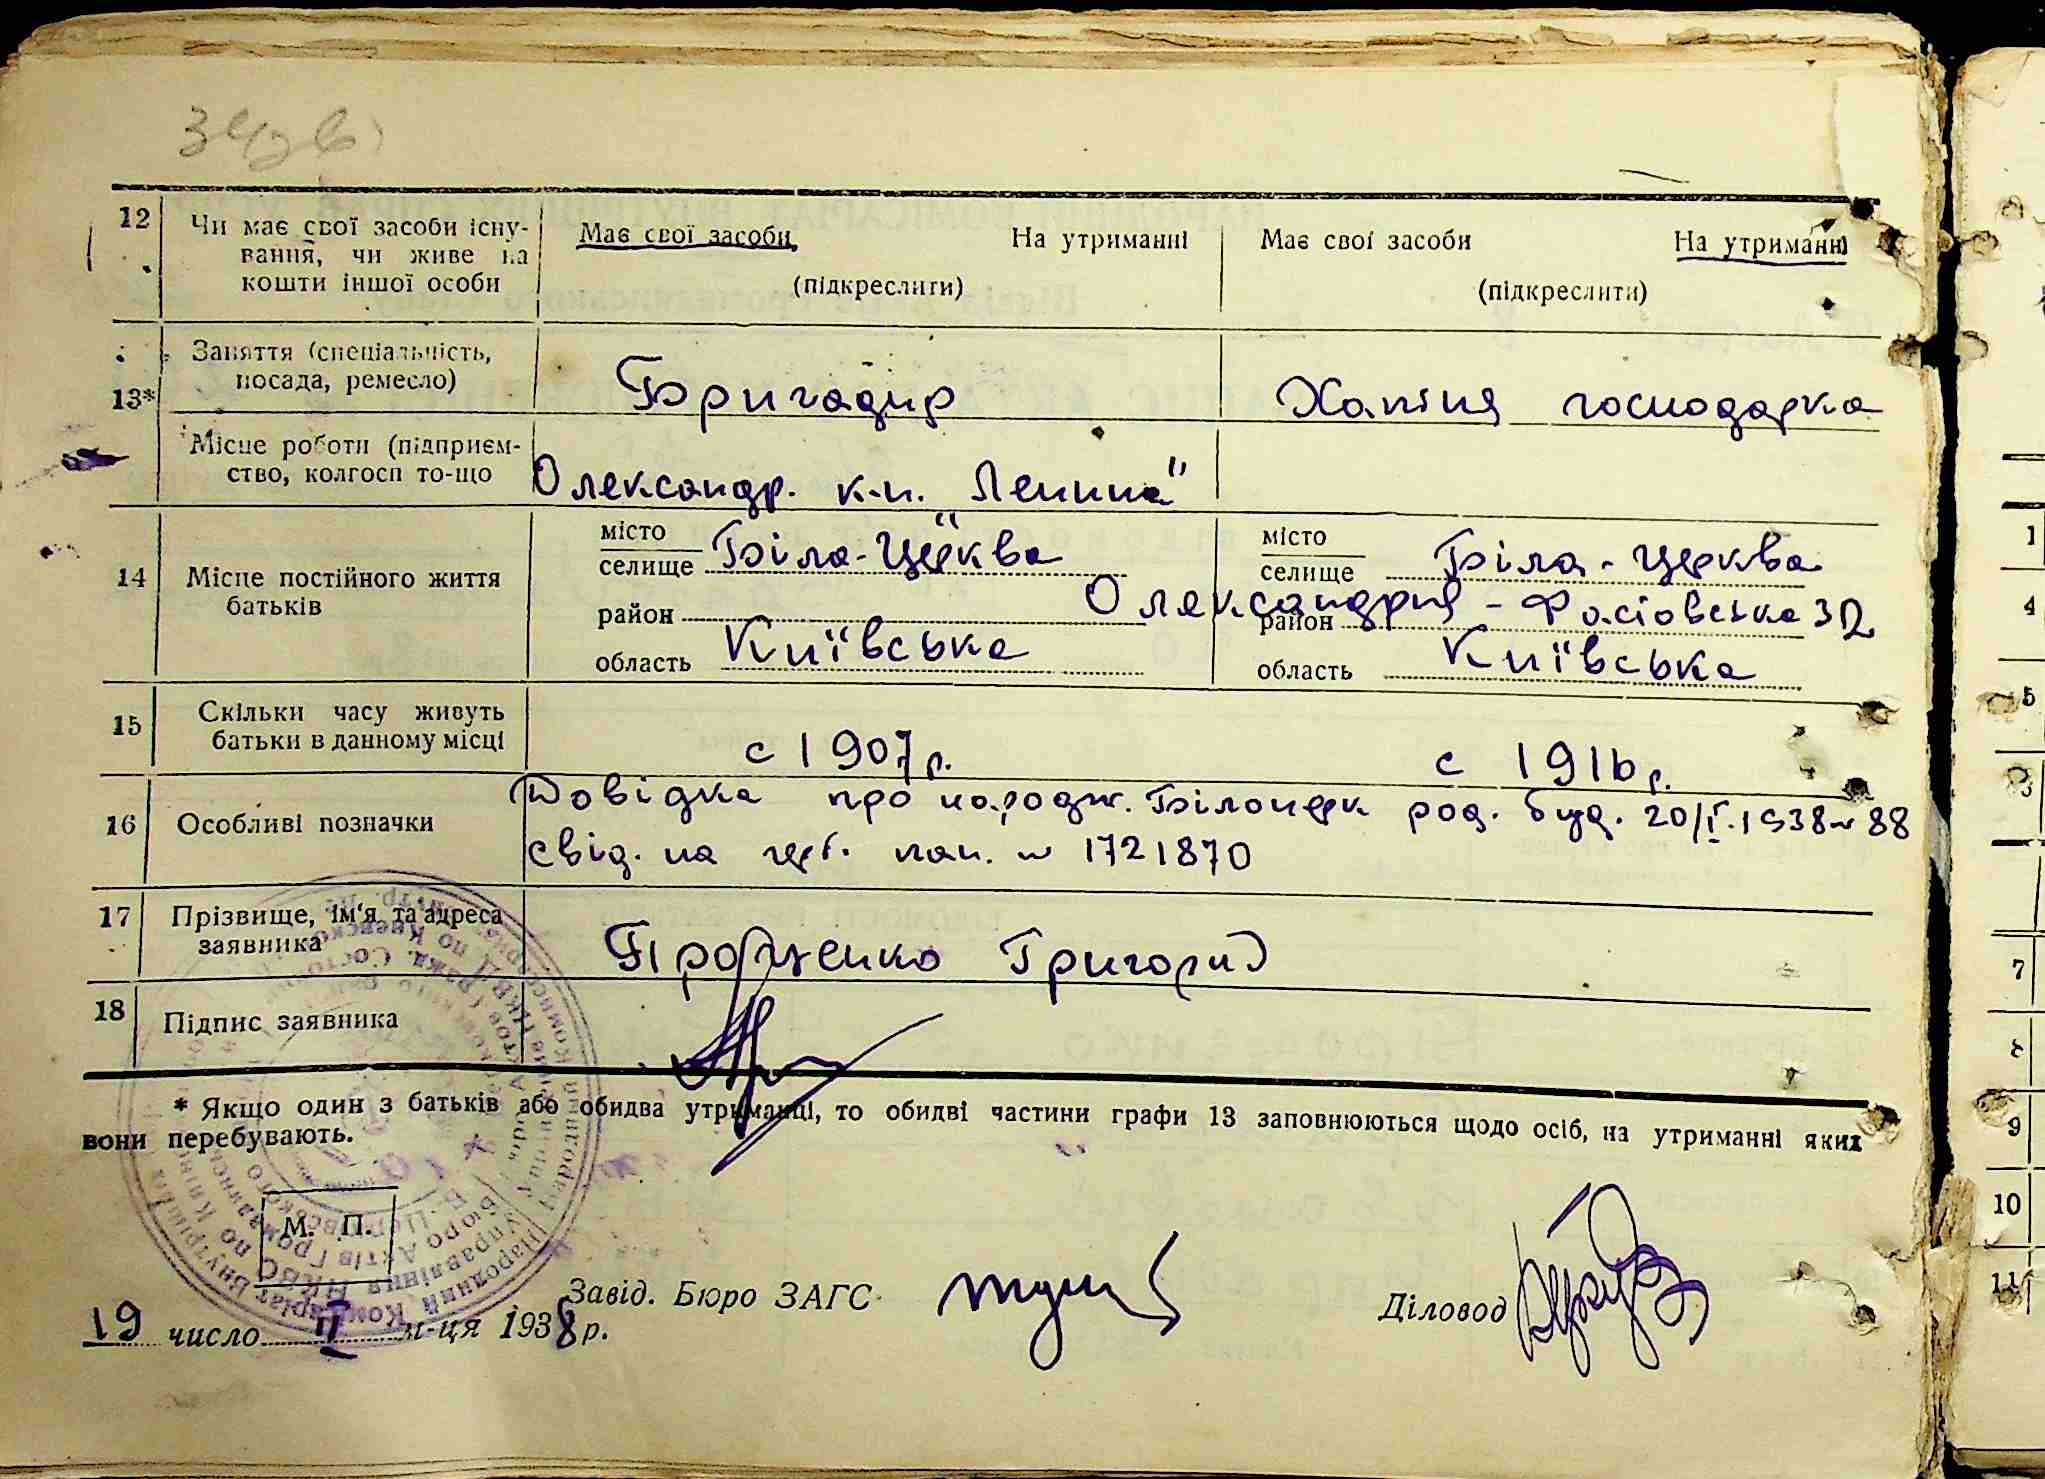 12 Чи має свої засоби існу-
вання, чи живе на
кошти іншої особи
Має свої засоби На утриманні
(підкреслити)
Має свої засоби На утриманні
(підкреслити)
13*
Заняття (спеціальність,
посада, ремесло)
Бригадир
Хатня господарка
Місце роботи (підприєм-
ство, колгосп то-що
Олександр. к-п. "Ленина"
14 Місце постійного життя
батьків
місто
селище Біла-Церква
район
область Київська
місто
селище Біла-Церква
Олександрия - Фастовська 32
район
область Київська
15 Скільки часу живуть
батьки в данному місці
с 1907 г.
с 1916 г.
16 Особливі позначки
Довідка про народж. Білоцерк род. буд. 20/I.1938 № 88
свід. на герб. пап. № 1721870
17 Прізвище, ім'я та адреса
заявника
Проценко Григорий
18 Підпис заявника
* Якщо один з батьків або обидва утриманці, то обидві частини графи 13 заповнюються щодо осіб, на утриманні яких
вони перебувають.
М. П.
19 число II м-ця 1938 р.
Завід. Бюро ЗАГС
Діловод
1
4
5
3
7
8
9
10
11